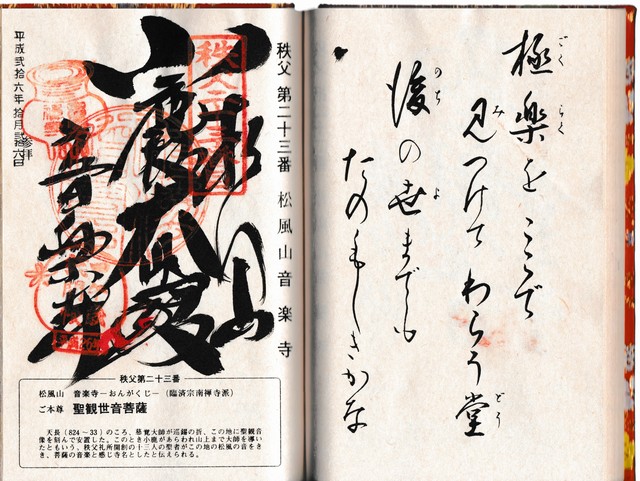 極楽を ここで
ごく らく
見つけて わらう堂
み どう
後の世までも
のち よ
たのもしきかな
秩父 第二十三番 松風山 音楽寺
音楽寺
参拝
平成弐拾六年拾月弐拾六日
秩父第二十三番
松風山 音楽寺―おんがくじ―(臨済宗南禅寺派)
ご本尊 聖観世音菩薩
天長(824〜33)のころ、慈覚大師が巡錫の折、この地に聖観音
像を刻んで安置した。このとき小鹿があらわれ山上まで大師を導い
たともいう。秩父札所開創の十三人の聖者がこの地の松風の音をき
き、菩薩の音楽と感じ寺名としたと伝えられる。